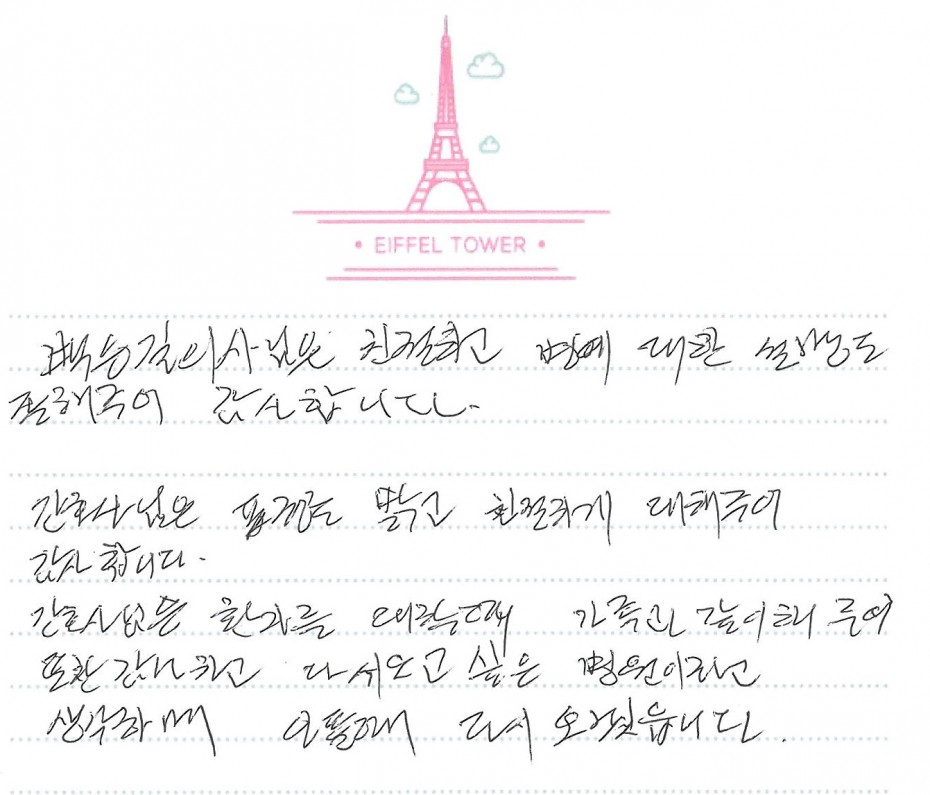 • EIFFEL TOWER •
백승길의사님은 친절하고 병에 대한 설명도
잘해주어 감사합니다.
간호사님은 표정도 밝고 친절하게 대해주어
감사합니다.
간호사님은 환자를 대할때 가족같이해 주어
또한 감사하고 다시오고 싶은 병원이라고
생각하며 아플때 다시 오겠습니다.